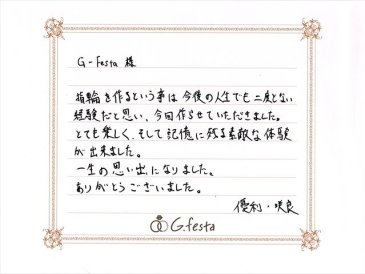 G-Festa 様
指輪を作るという事は今後の人生でも二度とない
経験だと思い、今回作らせていただきました。
とても楽しく、そして記憶に残る素敵な体験
が出来ました。
一生の思い出になりました。
ありがとうございました。
優利・咲良
G.festa